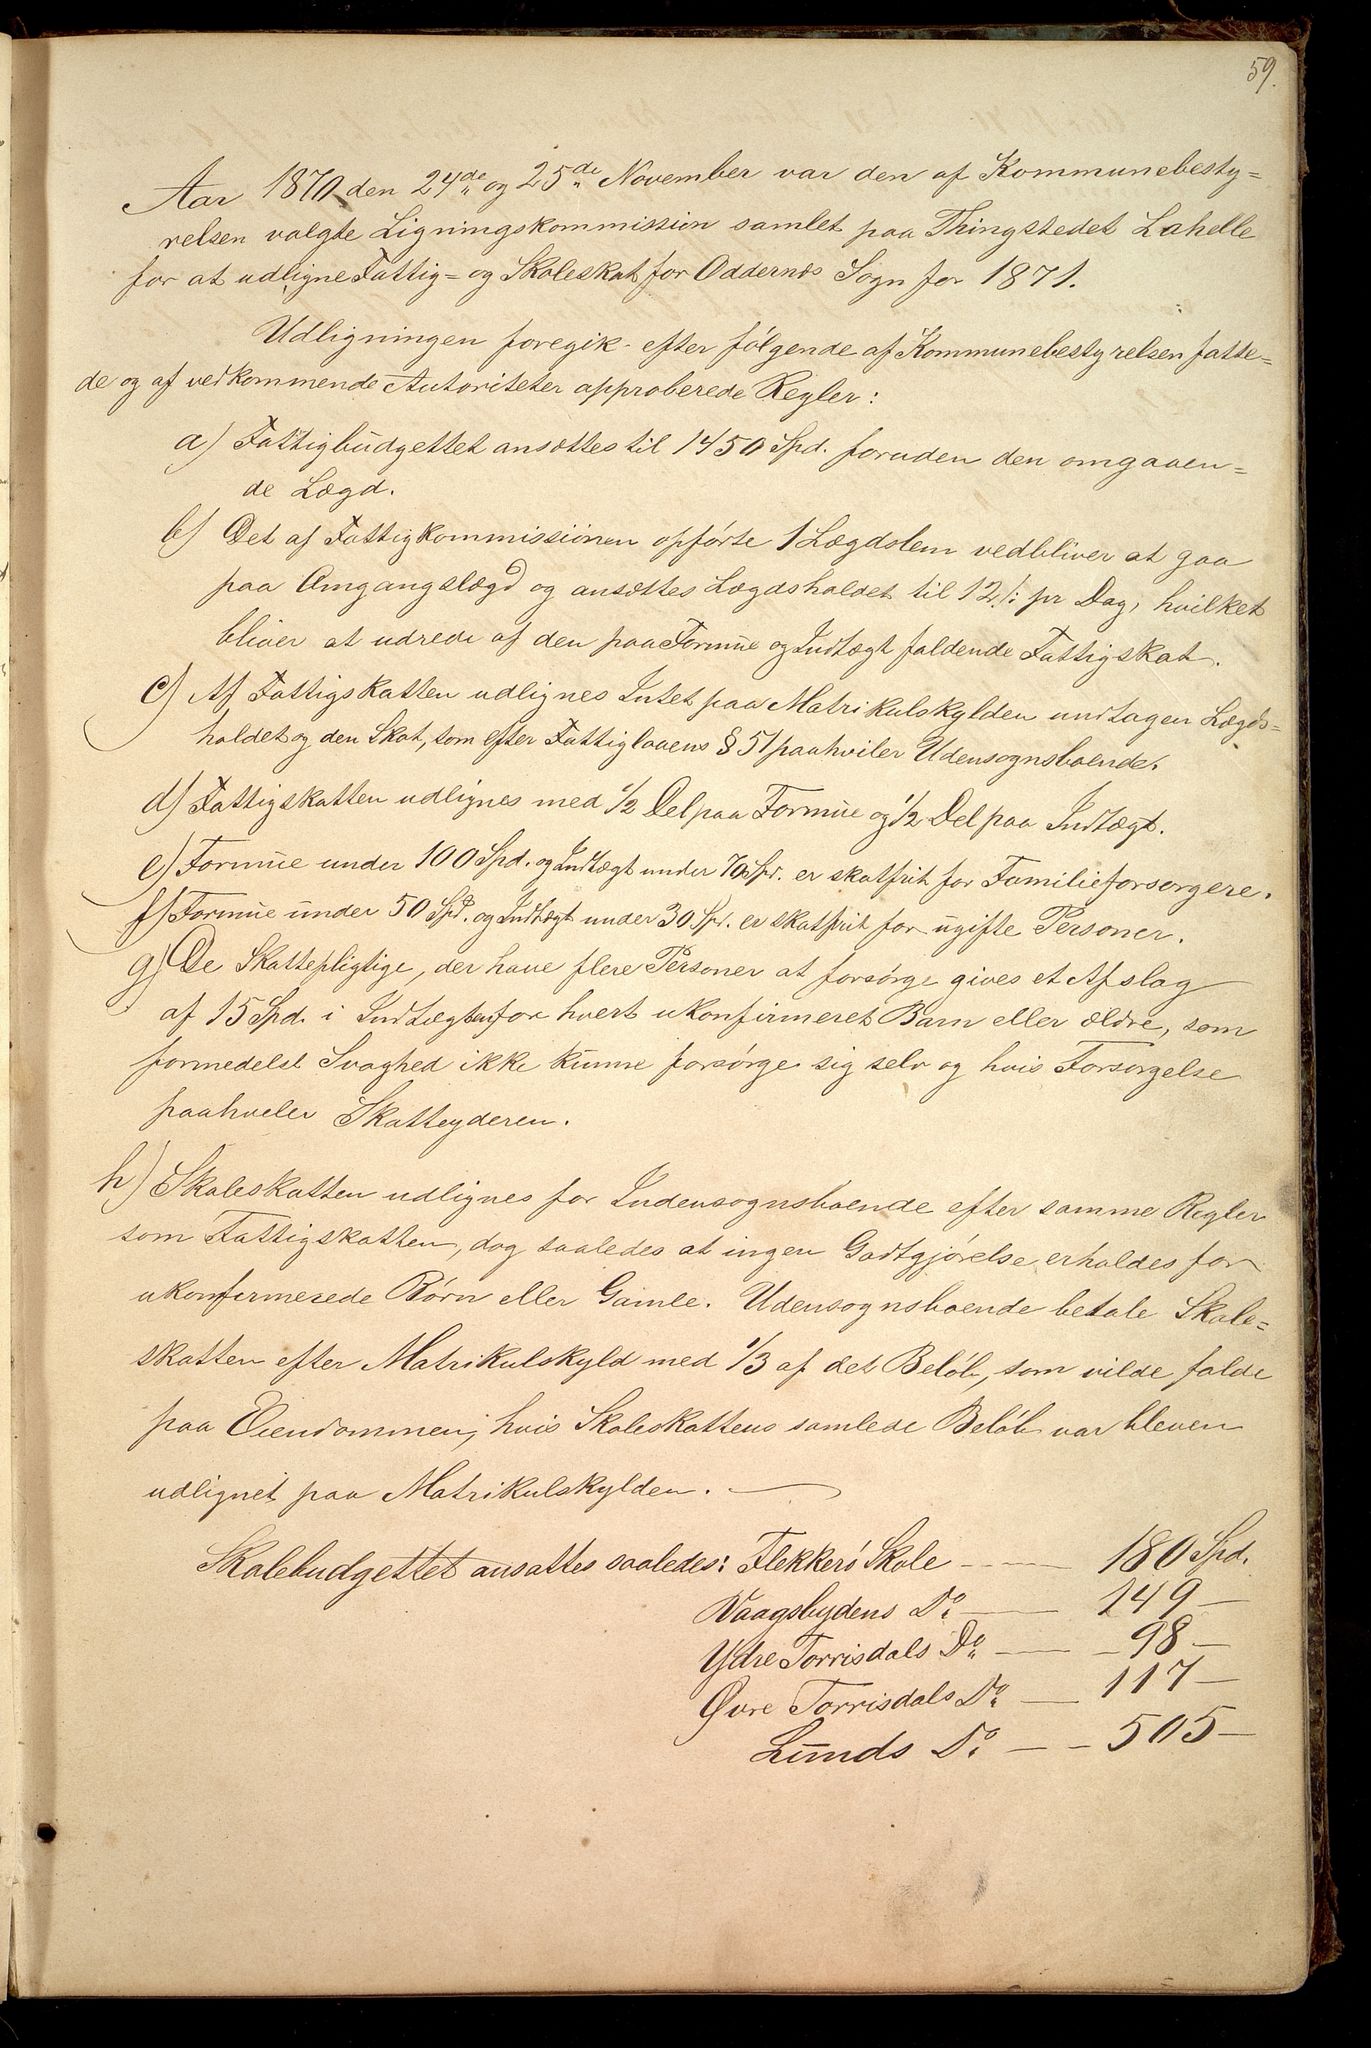 59.
Aar 1870 den 24de og 25de November var den af Kommunebesty=
relsen valgte Ligningskommission samlet paa Thingstedet Lahelle
for at udligne Fattig= og Skoleskat for Oddernæs Sogn for 1871.
Udligningen foregik efter følgende af Kommunebestyrelsen fatte=
de og af vedkommende Autoriteter approberede Regler:
a) Fattigbudgettet ansættes til 1450 Spd. foruden den omgaaen=
de Lægd.
b) Det af Fattigkommissionen opførte 1 Lægdslem vedbliver at gaa
paa Omgangslægd og ansættes Lægdsholdet til 12 /: pr Dag, hvilket
bliver at udrede af den paa Formue og Indtægt faldende Fattigskat.
c) Af Fattigskatten udlignes Intet paa Matrikulskylden undtagen Lægds=
holdet og den Skat, som efter Fattiglovens § 51 paahviler Udensognsboende.
d) Fattigskatten udlignes med 1/2 Del paa Formue og 1/2 Del paa Indtægt.
e) Formue under 100 Spd. og Indtægt under 70 Spd. er skatfrit for Familieforsørgere.
f) Formue under 50 Spd. og Indtægt under 30 Spd. er skatfrit for ugifte Personer.
g) De Skattepligtige, der have flere Personer at forsørge gives et Afslag
af 15 Spd. i Indtægten for hvert ukonfirmeret Barn eller ældre, som
formedelst Svaghed ikke kunne forsørge sig selv og hvis Forsørgelse
paahviler Skatteyderen.
h) Skoleskatten udlignes for Indensognsboende efter samme Regler
som Fattigskatten, dog saaledes at ingen Godtgjørelse erholdes for
ukonfirmerede Børn eller Gamle. Udensognsboende betale Skole=
skatten efter Matrikulskyld med 1/3 af det Beløb, som vilde falde
paa Eiendommen, hvis Skoleskattens samlede Beløb var bleven
udlignet paa Matrikulskylden. —
Skolebudgettet ansattes saaledes: Flekkerø Skole — 180 Spd.
Vaagsbydens Do — 149 —
Ydre Torrisdals Do — 98 —
Øvre Torrisdals Do — 117 —
Lunds Do — 505 —